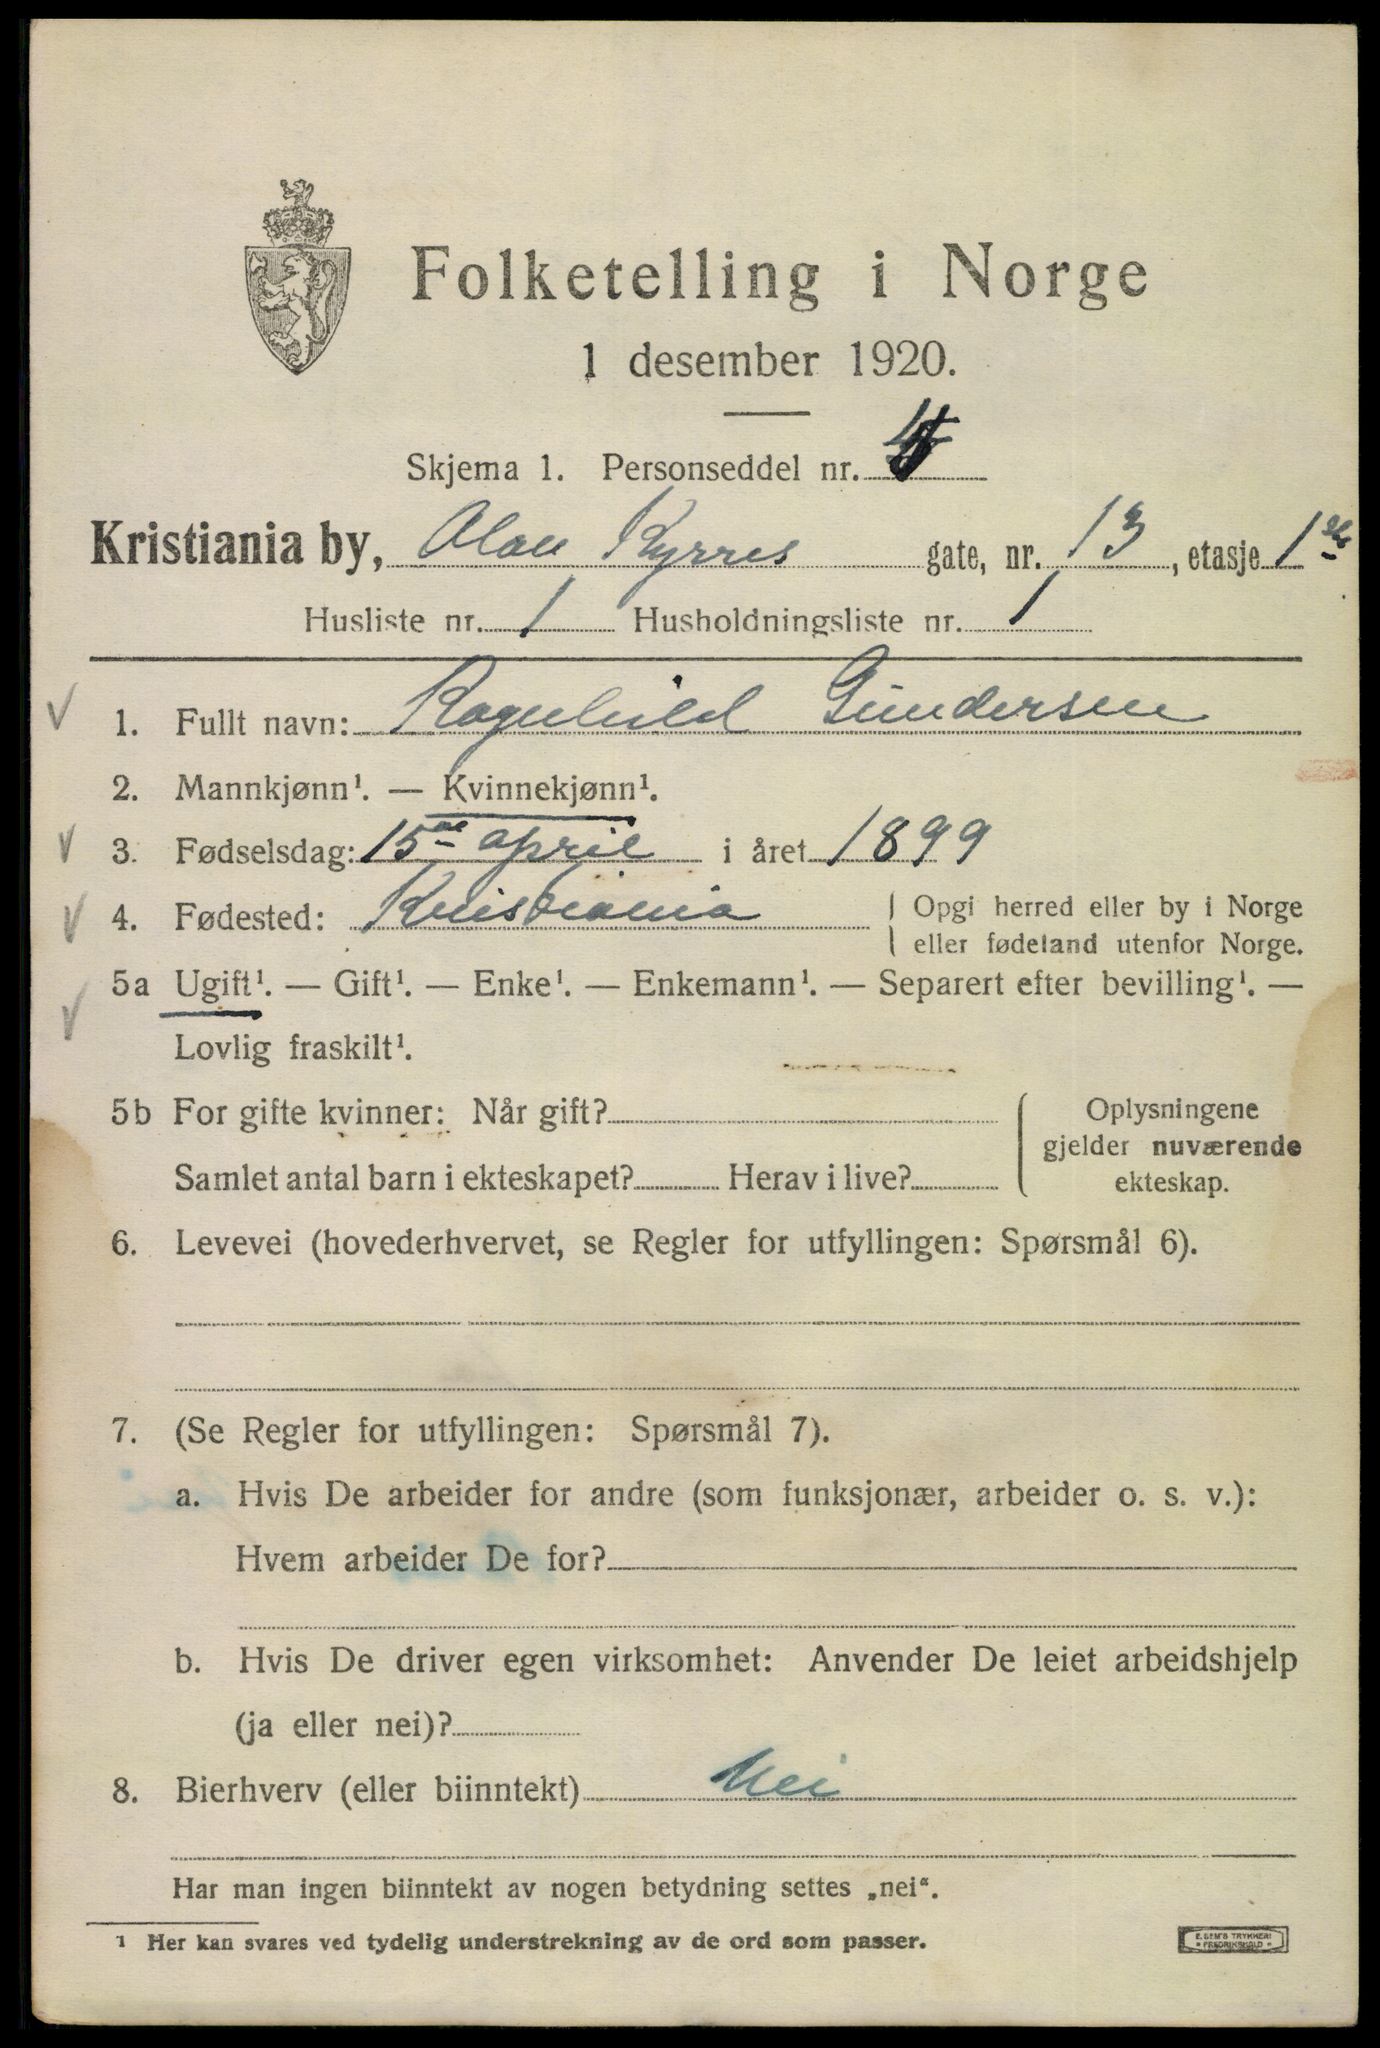 Folketelling i Norge
1 desember 1920.
Skjema 1. Personseddel nr.
Kristiania by, Olau Kyrres gate, nr. 13, etasje 1ste
Husliste nr. 1 Husholdningsliste nr. 1
1. Fullt navn: Ragnhild Gundersen
2. Mannkjønn¹. — Kvinnekjønn¹.
3. Fødselsdag: 15de april i året 1899
4. Fødested: Kristiania { Opgi herred eller by i Norge
eller fødeland utenfor Norge.
5a Ugift¹. — Gift¹. — Enke¹. — Enkemann¹. — Separert efter bevilling¹. —
Lovlig fraskilt¹.
5b For gifte kvinner: Når gift? Oplysningene
gjelder nuværende
Samlet antal barn i ekteskapet? Herav i live? ekteskap.
6. Levevei (hovederhvervet, se Regler for utfyllingen: Spørsmål 6).
7. (Se Regler for utfyllingen: Spørsmål 7).
a. Hvis De arbeider for andre (som funksjonær, arbeider o. s. v.):
Hvem arbeider De for?
b. Hvis De driver egen virksomhet: Anvender De leiet arbeidshjelp
(ja eller nei)?
8. Bierhverv (eller biinntekt) Nei
Har man ingen biinntekt av nogen betydning settes „nei“.
¹ Her kan svares ved tydelig understrekning av de ord som passer.
E. SEM'S TRYKKERI
FREDRIKSHALD